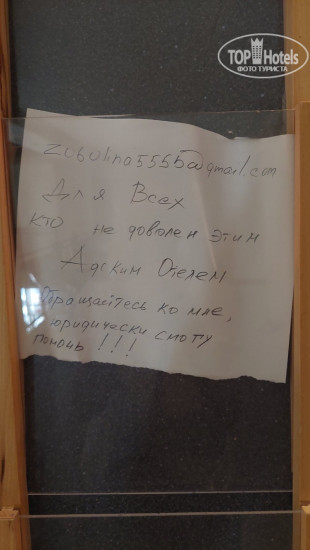 TOP Hotels
ФОТО ТУРИСТА
zubulina5555@gmail.com
Для Всех
кто не доволен этим
Адским Отелем
Обращайтесь ко мне,
юридически смогу
помочь !!!